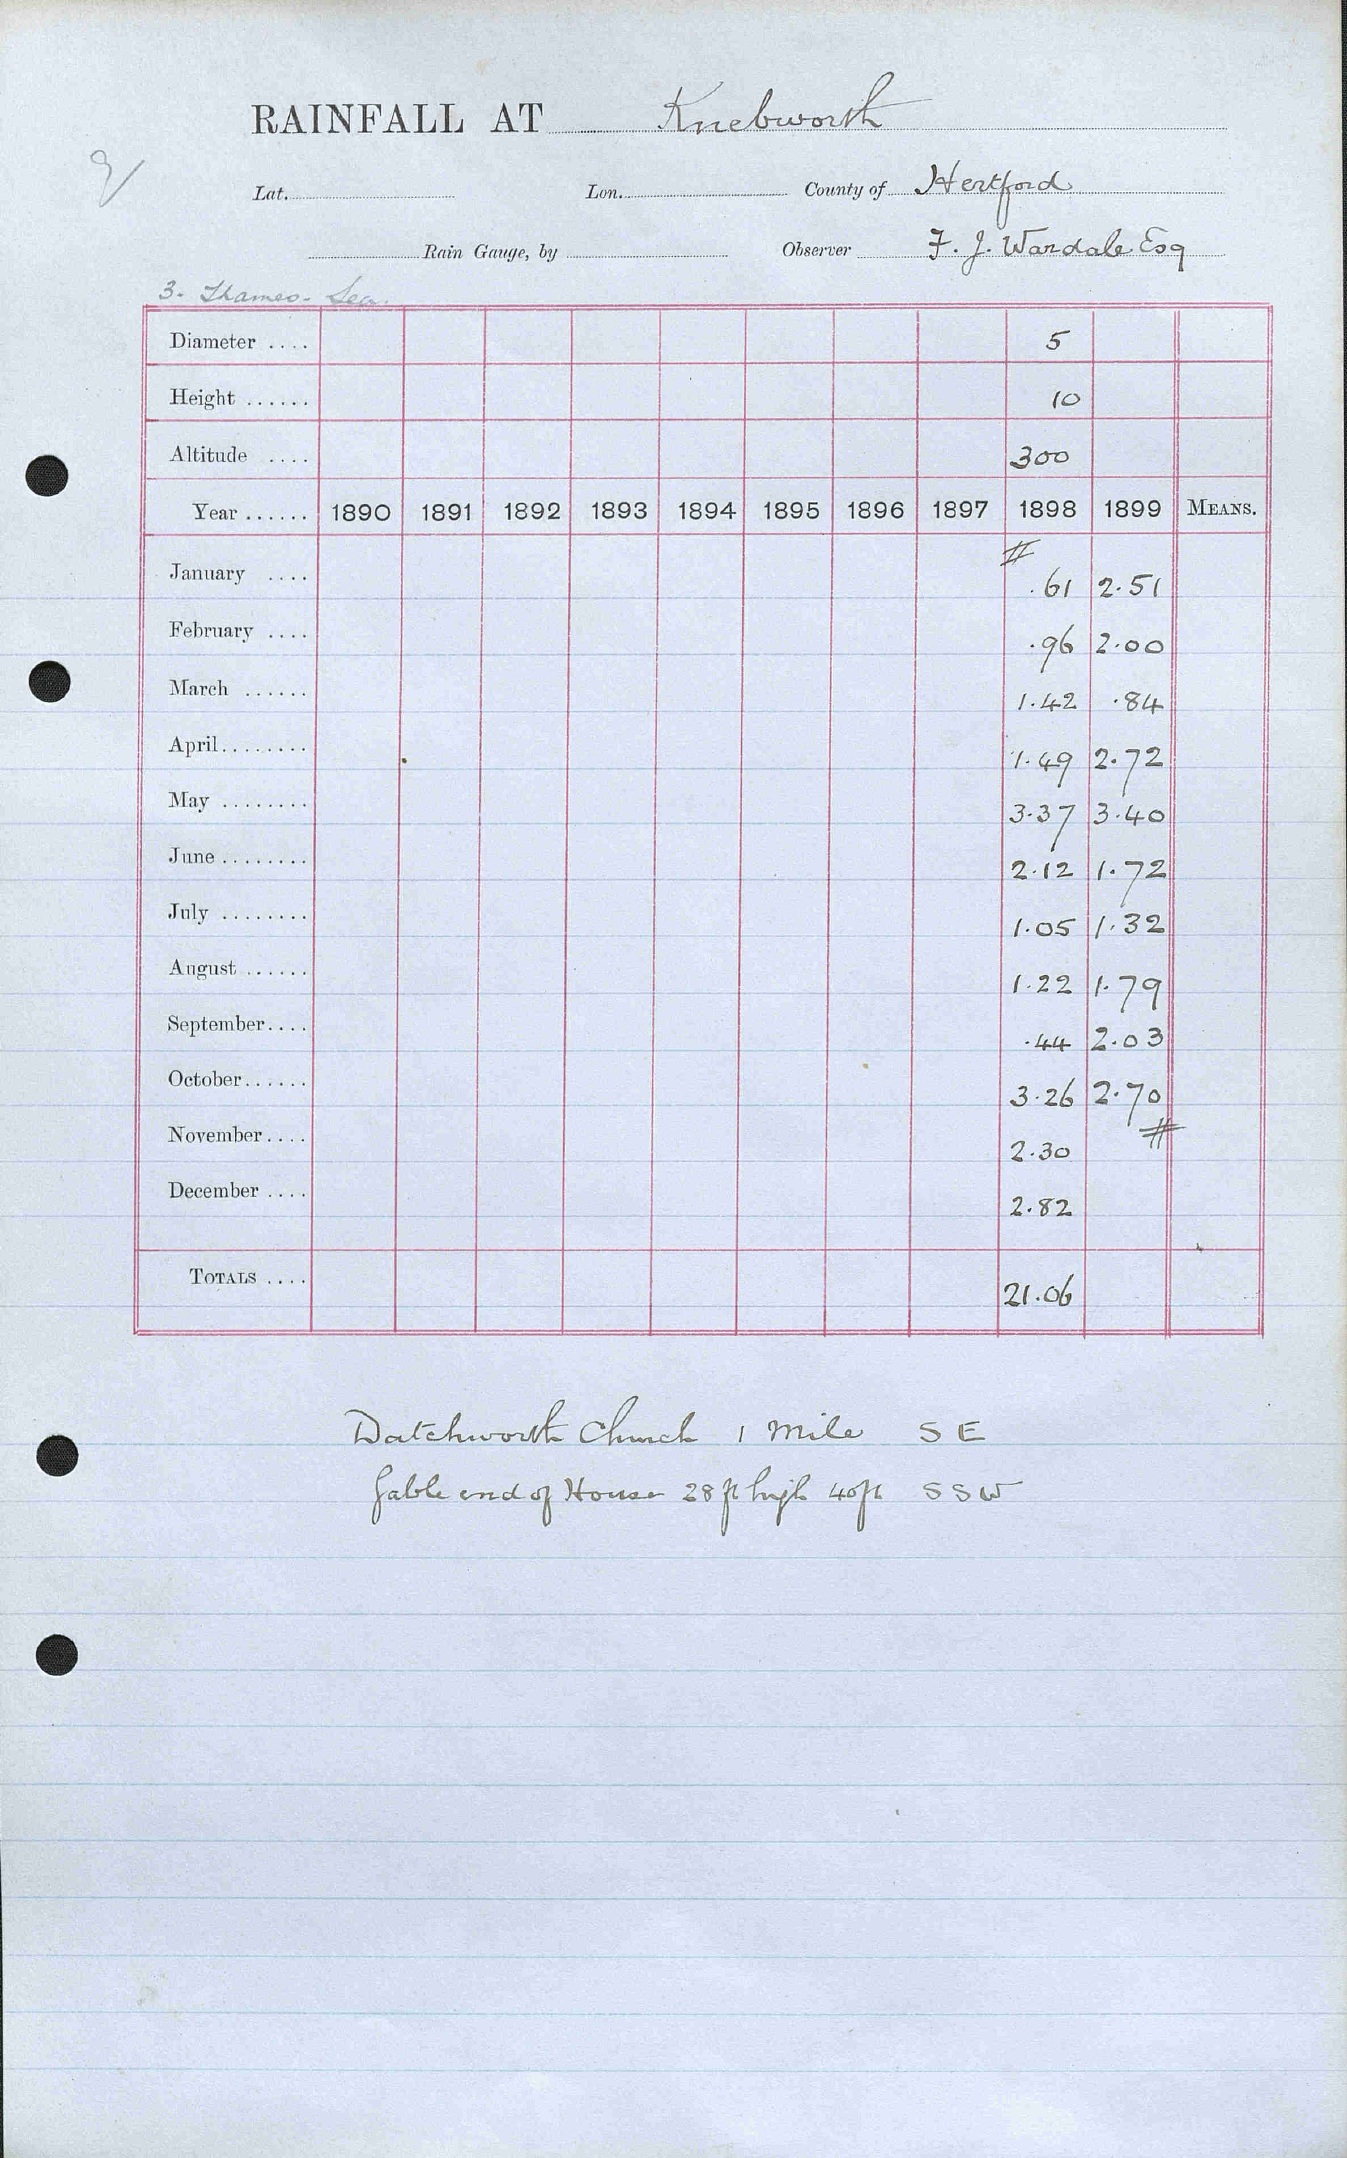 RAINFALL AT Knebworth
Lat. Lon. County of Hertford
Rain Gauge, by Observer F. J. Wardale Esq
3. Thames - Lea.
Diameter .... 5
Height ...... 10
Altitude .... 300
Year ...... 1890 1891 1892 1893 1894 1895 1896 1897 1898 1899 MEANS.
#
January .... .61 2.51
February .... .96 2.00
March ...... 1.42 .84
April ........ 1.49 2.72
May ........ 3.37 3.40
June ........ 2.12 1.72
July ........ 1.05 1.32
August ...... 1.22 1.79
September .... .44 2.03
October ...... 3.26 2.70
#
November .... 2.30
December .... 2.82
TOTALS .... 21.06
Datchworth Church 1 mile S E
Gable end of House 28 ft high 40 ft S S W